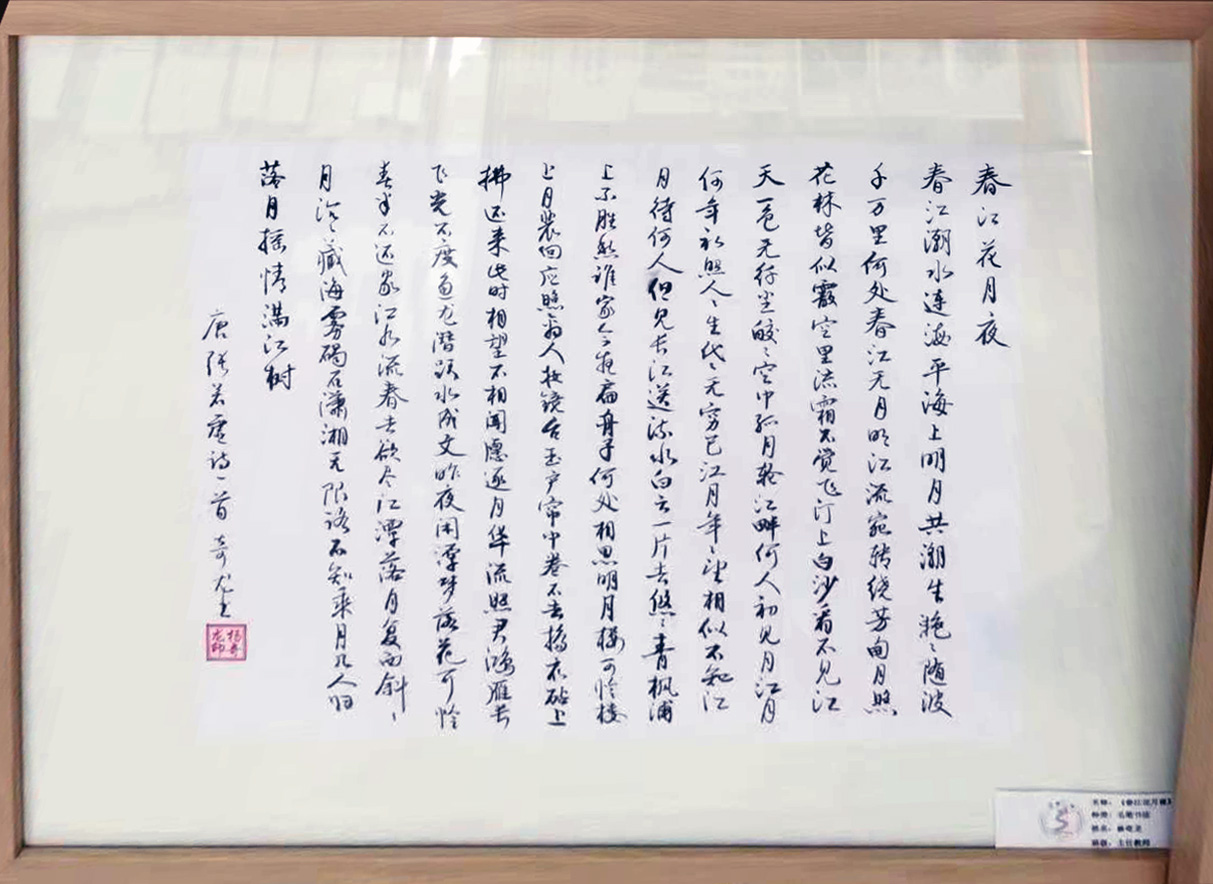 春江花月夜
春江潮水连海平海上明月共潮生滟〻随波
千万里何处春江无月明江流宛转绕芳甸月照
花林皆似霰空里流霜不觉飞汀上白沙看不见江
天一色无纤尘皎〻空中孤月轮江畔何人初见月江月
何年初照人〻生代〻无穷已江月年〻望相似不知江
月待何人但见长江送流水白云一片去悠〻青枫浦
上不胜愁谁家今夜扁舟子何处相思明月楼可怜楼
上月裴回应照离人妆镜台玉户帘中卷不去捣衣砧上
拂还来此时相望不相闻愿逐月华流照君鸿雁长
飞光不度鱼龙潜跃水成文昨夜闲潭梦落花可怜
春半不还家江水流春去欲尽江潭落月复西斜〻
月沉〻藏海雾碣石潇湘无限路不知乘月几人归
落月摇情满江树
唐张若虚诗一首 奇龙书
杨奇龙印
名称：《春江花月夜》
种类：毛笔书法
姓名：杨奇龙